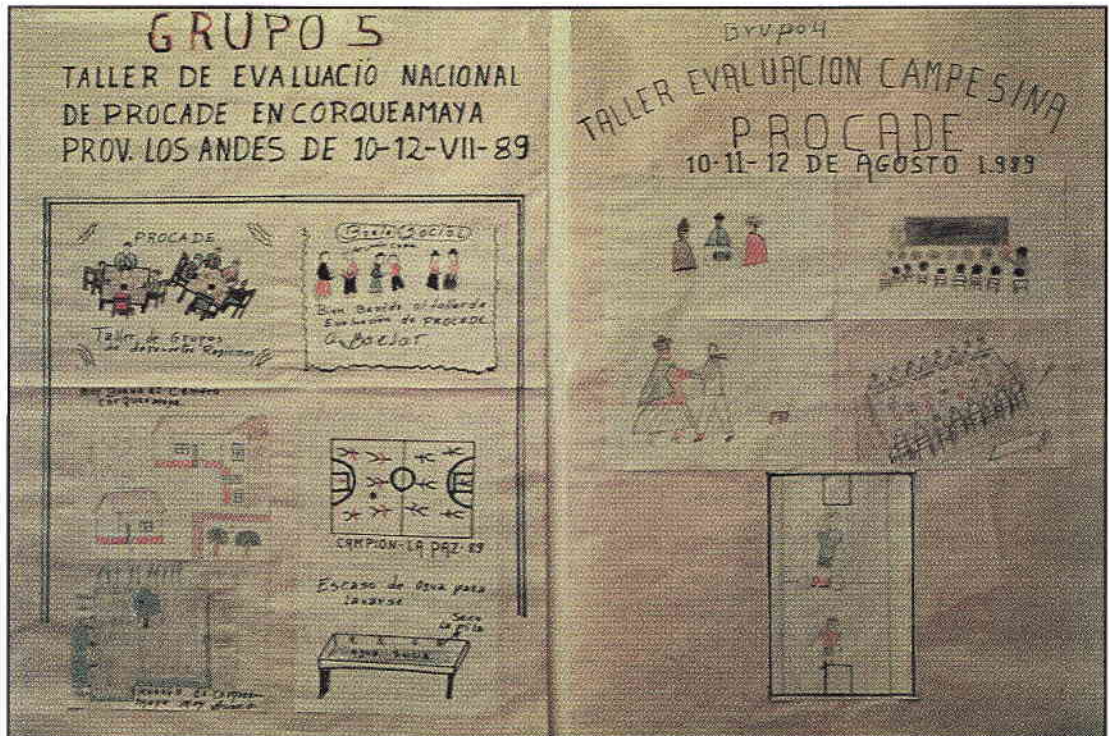 GRUPO 5
TALLER DE EVALUACIO NACIONAL
DE PROCADE EN CORQUEAMAYA
PROV. LOS ANDES DE 10-12-VII-89
PROCADE
Taller de Grupos
de deferentes Regiones
Social
Bien Benido al taller de
Evaluación de PROCADE
CAMPION-LA PAZ-89
Escaso de Agua para
lavarse
Seco
la pila
agua sucia
Grupo 4
TALLER EVALUACION CAMPESINA
PROCADE
10-11-12 DE AGOSTO 1.989